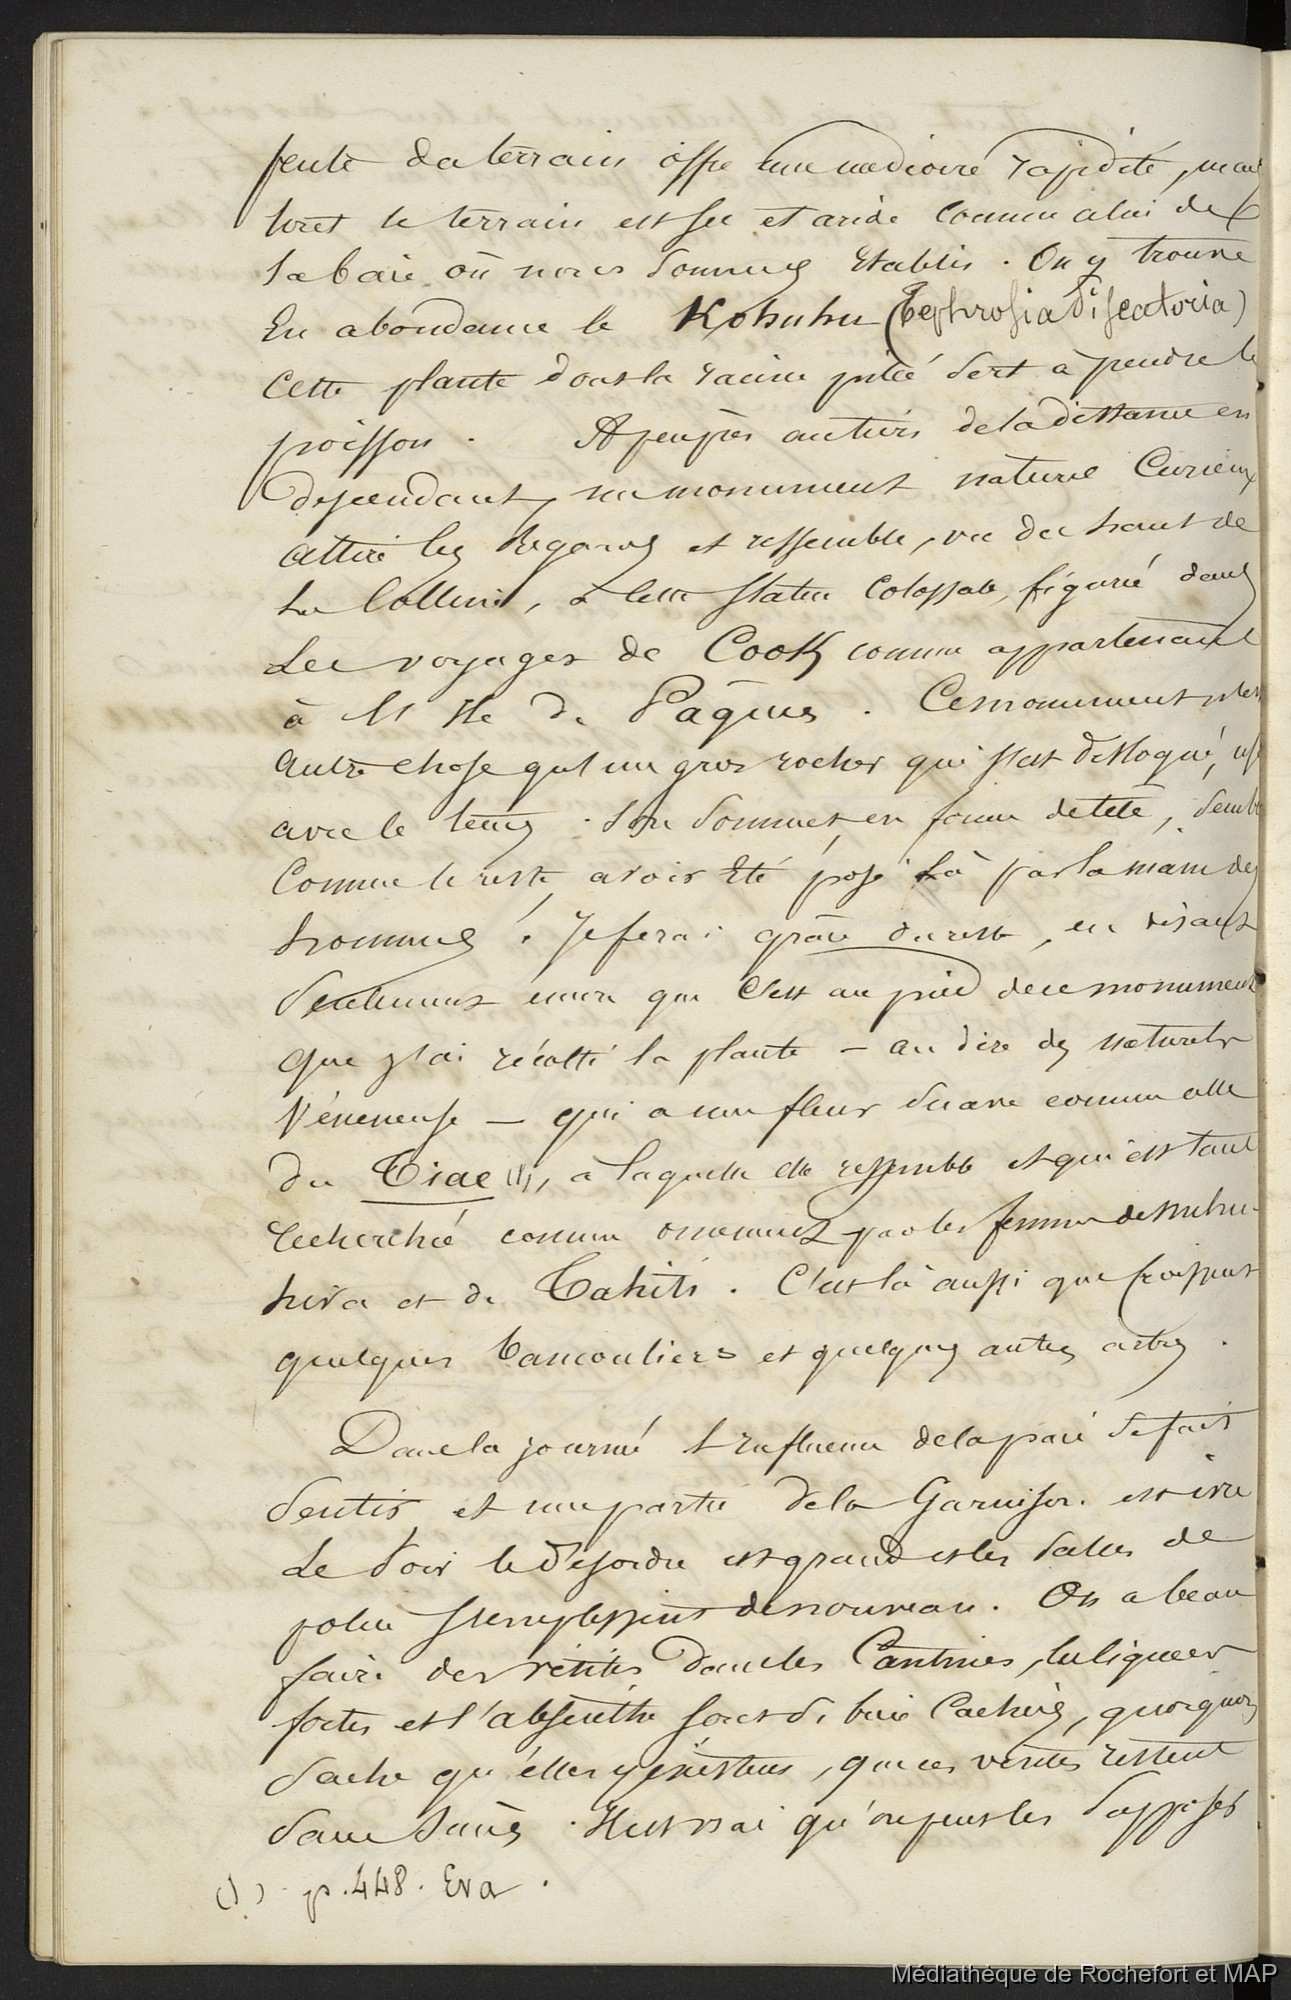 pente du terrain offre une mediocre rapidité, mais
tout le terrain est sec et aride comme celui de
la baie où nous sommes établis. On y trouve
En abondance le Kohuhu (Tephrosia Piscatoria)
Cette plante dont la racine pilée sert à prendre le
poisson. A peu près au tiers de la distance en
descendant, un monument naturel Curieux
attire les regards et ressemble, vu du haut de
la Colline, à cette statue Colossale, figurée dans
Les voyages de Cook comme appartenant
à l'Ile de Pâques. Ce monument n'est
autre chose qu'un gros rocher qui s'est disloqué, usé
avec le tems. Son sommet en forme de tête, semble
Comme le reste, avoir été posé là par la main des
hommes. Je ferai grâce du reste, en disant
seulement encore que C'est au pied de ce monument
que j'ai récolté la plante — au dire des naturels
Vénéneuse — qui a une fleur suave comme celle
du Tiae (1), à laquelle elle ressemble et qui est tant
recherchée comme ornement par les femmes de Nuhu-
hiva et de Tahiti. C'est là aussi que croissent
quelques Bancouliers et quelques autres arbres.
Dans la journée l'influence de la paie se fait
sentir et une partie de la Garnison est ivre
Le soir le désordre est grand et les salles de
police s'emplissent de nouveau. On a beau
faire des visites dans les Cantines, les liqueurs
fortes et l'absinthe sont si bien Cachées, quoiqu'on
sache qu'elles y existent, que ces visites restent
sans succès. Il est vrai qu'on peut les supposer
(1) p. 448. Eva.
Médiathèque de Rochefort et MAP